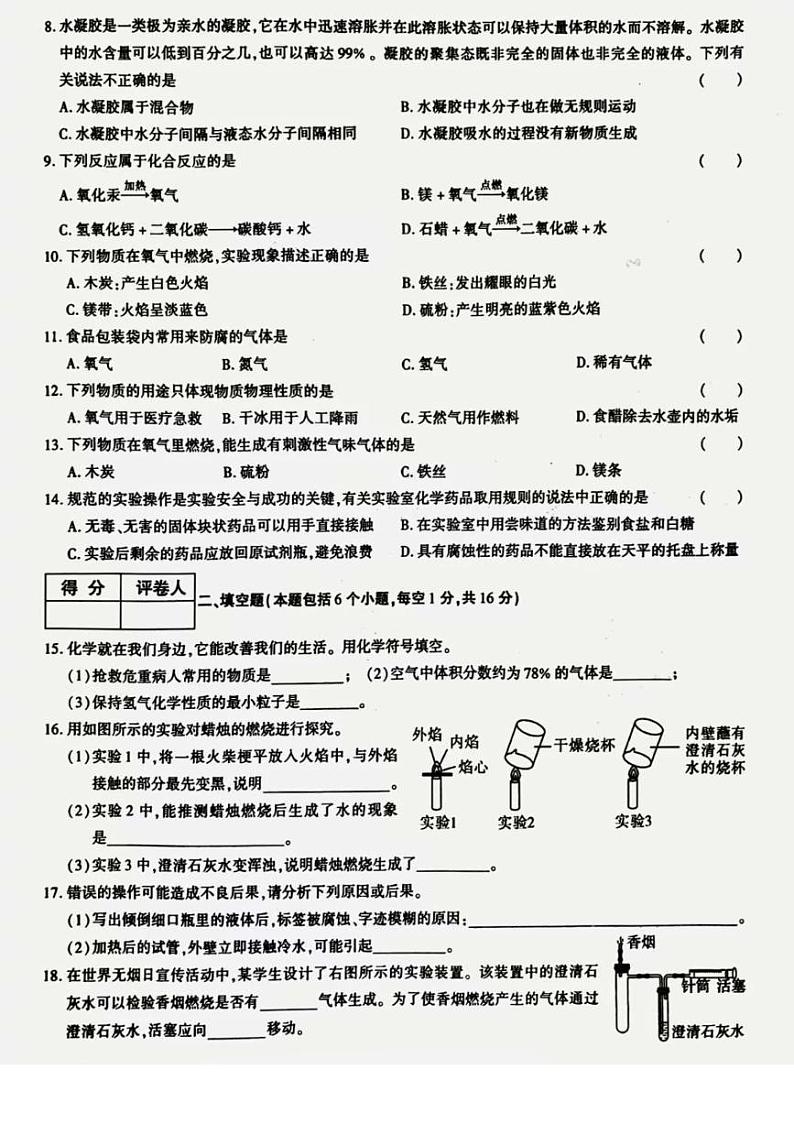 8. 水凝胶是一类极为亲水的凝胶,它在水中迅速溶胀并在此溶胀状态可以保持大量体积的水而不溶解。水凝胶
中的水含量可以低到百分之几,也可以高达 99% 。凝胶的聚集态既非完全的固体也非完全的液体。下列有
关说法不正确的是 ( )
A. 水凝胶属于混合物 B. 水凝胶中水分子也在做无规则运动
C. 水凝胶中水分子间隔与液态水分子间隔相同 D. 水凝胶吸水的过程没有新物质生成
9. 下列反应属于化合反应的是 ( )
A. 氧化汞 加热→ 氧气 B. 镁 + 氧气 点燃→ 氧化镁
C. 氢氧化钙 + 二氧化碳 → 碳酸钙 + 水 D. 石蜡 + 氧气 点燃→ 二氧化碳 + 水
10. 下列物质在氧气中燃烧,实验现象描述正确的是 ( )
A. 木炭:产生白色火焰 B. 铁丝:发出耀眼的白光
C. 镁带:火焰呈淡蓝色 D. 硫粉:产生明亮的蓝紫色火焰
11. 食品包装袋内常用来防腐的气体是 ( )
A. 氧气 B. 氮气 C. 氢气 D. 稀有气体
12. 下列物质的用途只体现物质物理性质的是 ( )
A. 氧气用于医疗急救 B. 干冰用于人工降雨 C. 天然气用作燃料 D. 食醋除去水壶内的水垢
13. 下列物质在氧气里燃烧,能生成有刺激性气味气体的是 ( )
A. 木炭 B. 硫粉 C. 铁丝 D. 镁条
14. 规范的实验操作是实验安全与成功的关键,有关实验室化学药品取用规则的说法中正确的是 ( )
A. 无毒、无害的固体块状药品可以用手直接接触 B. 在实验室中用尝味道的方法鉴别食盐和白糖
C. 实验后剩余的药品应放回原试剂瓶,避免浪费 D. 具有腐蚀性的药品不能直接放在天平的托盘上称量
得 分 评卷人
二、填空题(本题包括 6 个小题,每空 1 分,共 16 分)
15. 化学就在我们身边,它能改善我们的生活。用化学符号填空。
(1)抢救危重病人常用的物质是________; (2)空气中体积分数约为 78% 的气体是________;
(3)保持氢气化学性质的最小粒子是________。
16. 用如图所示的实验对蜡烛的燃烧进行探究。
(1)实验 1 中,将一根火柴梗平放入火焰中,与外焰
接触的部分最先变黑,说明________________。
(2)实验 2 中,能推测蜡烛燃烧后生成了水的现象
是________________。
(3)实验 3 中,澄清石灰水变浑浊,说明蜡烛燃烧生成了________。
外焰
内焰
焰心
实验1
干燥烧杯
实验2
内壁蘸有
澄清石灰
水的烧杯
实验3
17. 错误的操作可能造成不良后果,请分析下列原因或后果。
(1)写出倾倒细口瓶里的液体后,标签被腐蚀、字迹模糊的原因:________________________。
(2)加热后的试管,外壁立即接触冷水,可能引起________。
18. 在世界无烟日宣传活动中,某学生设计了右图所示的实验装置。该装置中的澄清石
灰水可以检验香烟燃烧是否有________气体生成。为了使香烟燃烧产生的气体通过
澄清石灰水,活塞应向________移动。
香烟
针筒 活塞
澄清石灰水